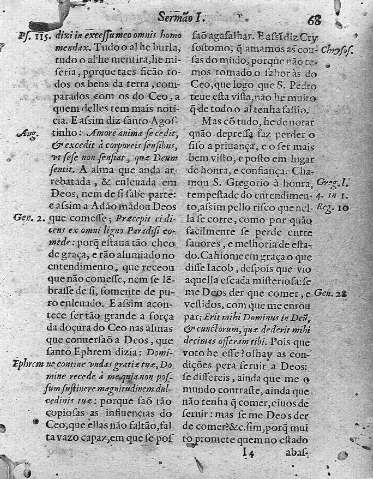 Sermão I.
68
Ps. 115.
dixi in excessu meo omnis homo
mendax. Tudo o al he burla,
tudo o al he mentira, he mi-
seria, porque taes ficão to-
dos os bens da terra, com-
parados com os do Ceo, a
quem delles tem mais noti-
cia. E assim diz santo Agos-
Aug.
tinho: Amore anima secedit,
& excedit à corporeis sensibus,
vt sese non sentiat, quæ Deum
sentit. A alma que anda ar-
rebatada, & enleuada em
Deos, nem de si sabe parte:
e assim a Adão mãdou Deos
Gen. 2.
que comesse; Præcepit ei di-
cens ex omni ligno Paradisi co-
mede: porq̃ estaua tão cheo
de graça, e tão alumiado no
entendimento, que receou
que não comesse, nem se lẽ-
brasse de si, somente de pu-
ro enleuado. E assim acon-
tece ser tão grande a força
da doçura do Ceo nas almas
que conuersão a Deos, que
santo Ephrem dizia: Domi-
Ephrem
ne contine vndas gratiæ tuæ, Do-
mine recede à me quia non pos-
sum sustinere magnitudinem dul-
cedinis tuæ: porque são tão
copiosas as influencias do
Ceo, que ellas não faltão, fal-
ta vazo capaz, em que se pos-
são agasalhar. E assi diz Cry
sostomo, q̃ amamos as cou-
Chrysos.
sas do mũdo, porque não te-
mos tomado o sabor às do
Ceo, que logo que S. Pedro
teue esta vista, não he muito
q̃ de todo o al tenha fastio.
Mas cõ tudo, he de notar
quão depressa faz perder o
siso a priuança, e o ser mais
bem visto, e posto em lugar
de honra, e confiança. Cha-
mou S. Gregorio à honra,
Greg. l.
tempestade do entendimen-
4. in 1.
to, assim pello risco que nel
Reg. 10
la se corre, como por quão
facilmente se perde entre
fauores, e melhoria de esta-
do. Cahio me em graça o que
disse Iacob, despois que vio
aquella escada misteriosa: se
me Deos der que comer, e
Gen. 28
vestidos, com que me enrou
par; Erit mihi Dominus in Deũ,
& cunctorum, quæ dederit mihi
decimas offeram tibi. Pois que
voto he esse? olhay as con-
dições pera seruir a Deos:
se dissereis, ainda que me o
mundo contraste, ainda que
não tenha q̃ comer, ei uos de
seruir: mas se me Deos der
de comer &c. sim, porq̃ mui
to promete quem no estado
I 4
abas-